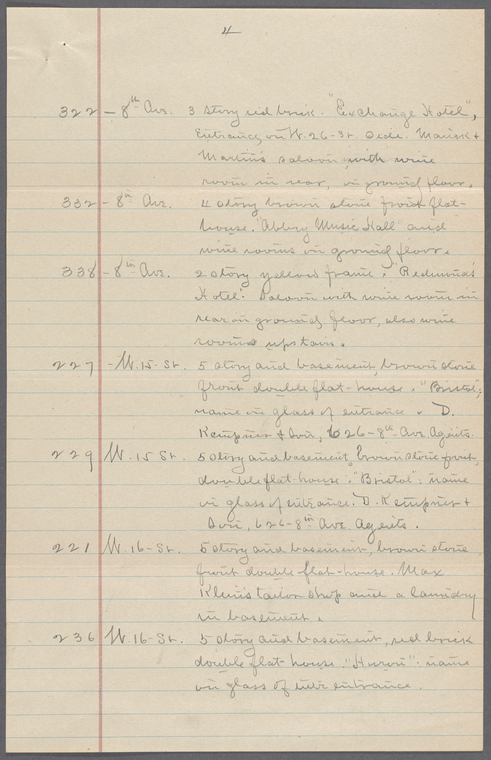 4
322 - 8th Ave. 3 story red brick. "Exchange Hotel",
Entrance on W. 26-St. side. Mausk +
Martin's saloon with wine
room in rear, on ground floor.
332 - 8th Ave. 4 story brown stone front flat-
house. "Abbey Music Hall" and
wine rooms on ground floor.
338 - 8th Ave. 2 story yellow frame. "Redmond's
Hotel". Saloon with wine room in
rear on ground floor, also wine
rooms upstairs.
227 - W. 15-St. 5 story and basement, brown stone
front double flat-house. "Bristol",
name in glass of entrance. D.
Kempner & Son, 626-8th Ave Agents.
229 W. 15 St. 5 story and basement, brown stone front,
double flat-house. "Bristol": name
in glass of entrance. D. Kempner +
Son, 626-8th Ave Agents.
221 W. 16-St. 5 story and basement, brown stone
front double flat-house. Max
Klein's tailor shop and a laundry
in basement.
236 W. 16-St. 5 story and basement, red brick
double flat-house. "Huron": name
on glass of entrance.